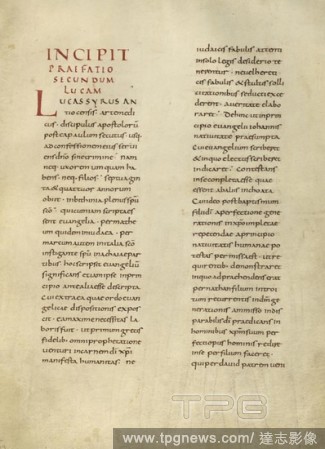 INCIPIT
PRAEFATIO
SECUNDUM
LUCAM
LUCAS SYRUS AN
tiocensis arte medi
cus discipulus apostoloru
postea paulum secutus usq
ad confessionem eius seru
iens dno sine crimine nam
neq uxorem umquam ha
bens neq filios septuagin
ta & quattuor annorum
obiit in bethinia plenus spu
sco qui cum iam scripta es
sent euangelia per matthe
um quidem in iudaea per
marcum autem in italia sco
instigante spu in achaiae par
tibus hoc scripsit euangeliu
significans etiam ipse in prin
cipio ante alia esse descripta
Cui extra ea quae ordo euan
gelicae dispositionis expos
cit ea maxime necessitas la
boris fuit ut primum grecis
fidelib omni prophetatione
uenturi in carnem di xpi
manifesta humanitas ne
iudaicis fabulis attenti
in solo legis desiderio te
nerentur neue hereti
cis fabulis & stultis solli
citationibus seducti exci
derent a ueritate elabo
raret Dehinc ut in prin
cipio euangelii iohannis
natiuitate praesumpta
cui euangelium scriberet
& in quo electus scriberet
indicaret Contestans
in se completa esse quae
essent ab aliis inchoata
Cui ideo post baptismum
filii di a perfectione gene
rationis in xpo impletae
repetendae a principio
natiuitatis humanae po
testas permissa est ut re
quirentib demonstraret
in quo adpraehendens erat
per nathan filium introi
tu recurrentis in dm ge
nerationis admisso indis
parabilis di praedicans in
hominibus xpm suum per
fecti opus hominis redire
in se per filium facer&
qui per dauid patrem uen
TPG
www.tpgnews.com/達志影像